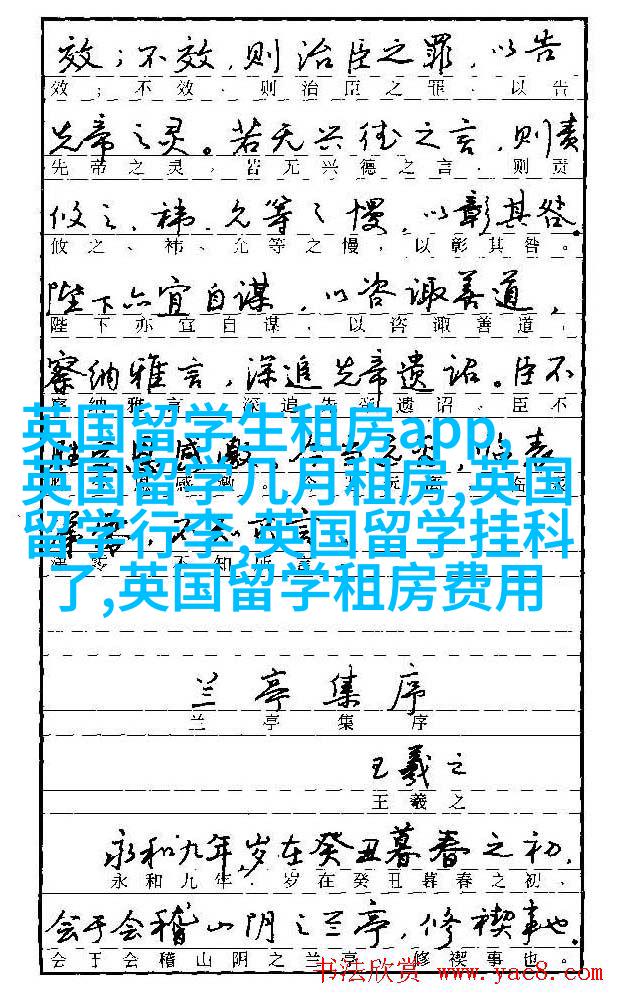 效；不效，则治臣之罪，以告
效；不效、则治臣之罪、以告
先帝之灵。若无兴德之言，则责
先帝之灵，若无兴德之言、则责
攸之、祎、允等之慢，以彰其咎。
攸之、祎、允等之慢，以彰其咎。
陛下亦宜自谋，以咨诹善道，
陛下亦宜自谋，以咨诹善道，
察纳雅言，深追先帝遗诏。臣不
纳雅言，深追先帝遗诏。臣不
英国留学生租房app,
英国留学几月租房,英国
留学行李,英国留学挂科
了,英国留学租房费用
感激。今当远离，临表
不知所言
兰亭集序
兰亭集序
王羲之
王羲之
永和九年,岁在癸丑暮春之初,
永和九年.岁在癸丑暮春之初、
会于会稽山阴之兰亭，修禊事也。
会于会稽山阴之兰亭，修禊事也。
书法欣赏 www.yac8.com